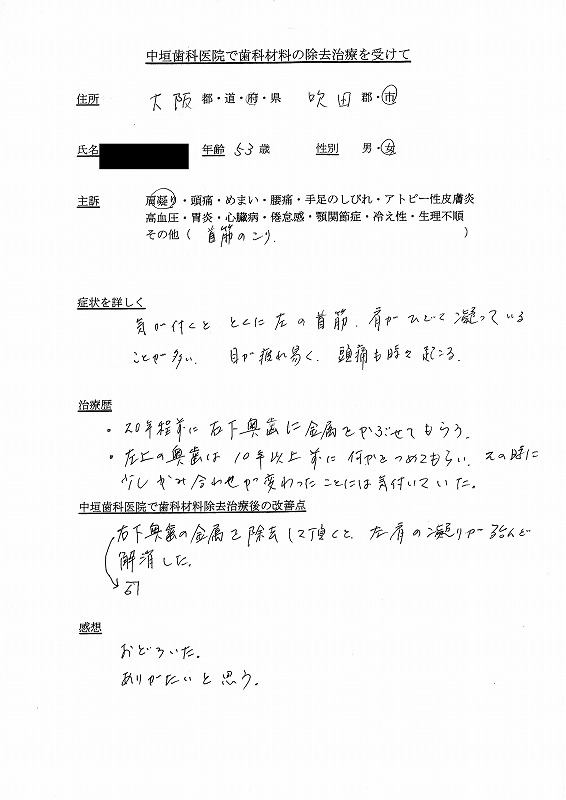 中垣歯科医院で歯科材料の除去治療を受けて
住所 大阪 都・道・府・県 吹田 郡・市
氏名 年齢 53 歳 性別 男・女
主訴 肩凝り・頭痛・めまい・腰痛・手足のしびれ・アトピー性皮膚炎
高血圧・胃炎・心臓病・倦怠感・顎関節症・冷え性・生理不順
その他（ 首筋のこり. ）
症状を詳しく
気が付くと とくに左の首筋、肩がひどく凝っている
ことが多い. 目が疲れ易く、頭痛も時々起こる.
治療歴
・20年程前に右下奥歯に金属をかぶせてもらう.
・左上の奥歯は10年以上前に何かをつめてもらい、その時に
少しかみ合わせが変わったことには気付いていた.
中垣歯科医院で歯科材料除去治療後の改善点
右下奥歯の金属を除去して頂くと、左肩の凝りがほとんど
解消した.
感想
おどろいた.
ありがたいと思う.